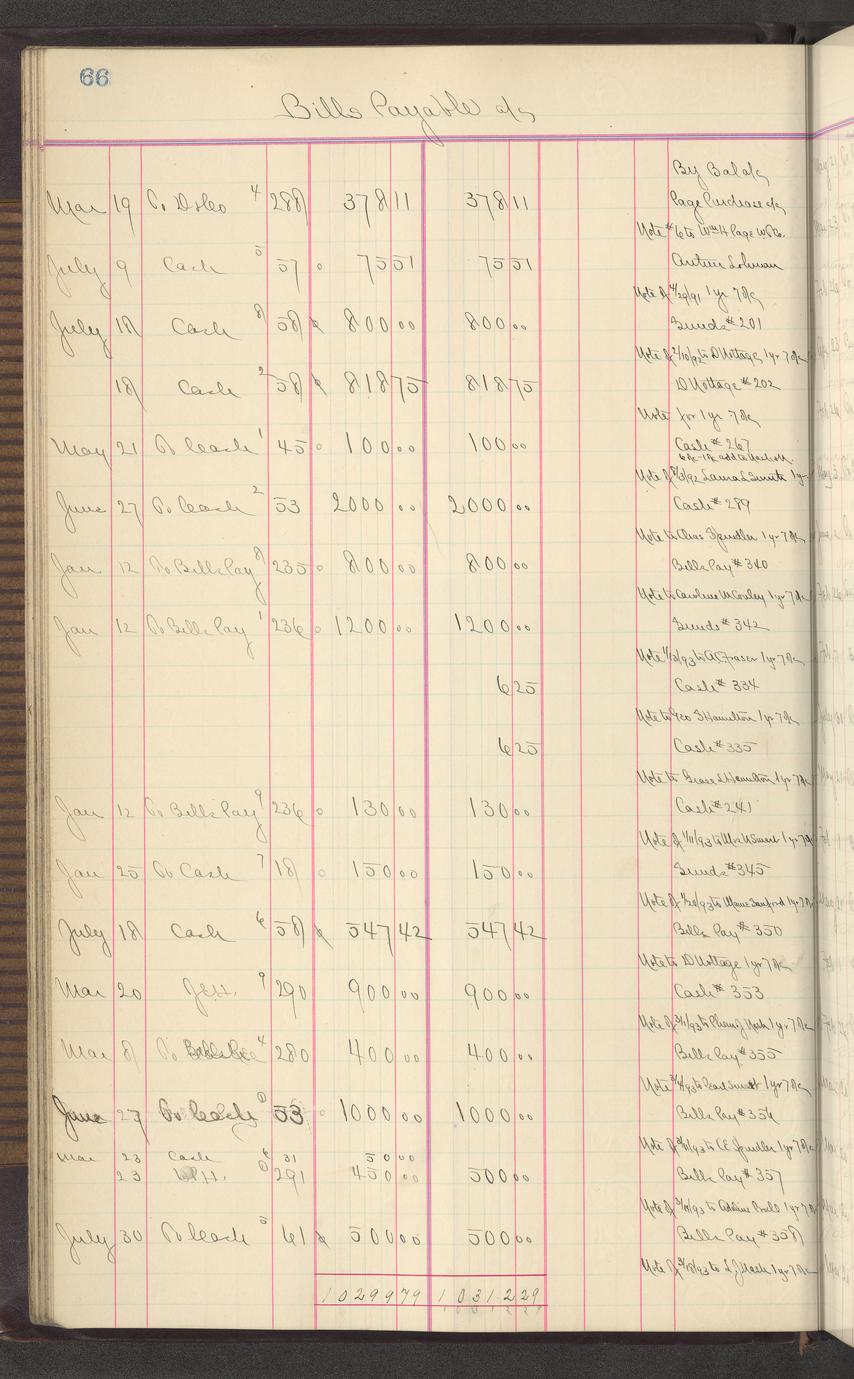 66
Bills Payable a/c
By Bal a/c
Mar 19 To D & Co 4 288 378 11 378 11 Page Purchase a/c
Note #6 to Wm H Page W. P. Co.
July 9 Cash 5 57 75 51 75 51
Note of 4/29/91 1 yr 7%
July 18 Cash 8 58 800 00 800 00 Sunds #201
Note of 2/10/92 to D Nottage 1 yr 7%
18 Cash 2 58 818 75 818 75 D Nottage #202
Note for 1 yr 7%
May 21 To Cash 1 45 100 00 100 00 Cash #267
Note of 8/3/92 Laura L Smith 1 yr
June 27 To Cash 2 53 2000 00 2000 00 Cash #289
Note to Chas Spindler 1 yr 7%
Jan 12 To Bills Pay 8 235 800 00 800 00 Bills Pay #340
Note to Caroline McCauley 1 yr 7%
Jan 12 To Bills Pay 1 236 1200 00 1200 00 Sunds #342
Note 1/3/93 to A C Fraser 1 yr 7%
6 25 Cash #334
Note to Geo S Hamilton 1 yr 7%
6 25 Cash #335
Note to Grace L Hamilton 1 yr 7%
Jan 12 To Bills Pay 9 236 130 00 130 00 Cash #241
Note of 1/11/93 to Mrs N Smart 1 yr 7%
Jan 25 To Cash 7 18 150 00 150 00 Sunds #345
Note of 1/20/93 to Mame Sanford 1 yr 7%
July 18 Cash 6 58 547 42 547 42 Bills Pay #350
Note to D Nottage 1 yr 7%
Mar 20 J.E.H. 9 290 900 00 900 00 Cash #353
Note of 3/1/93 to Nash 1 yr 7%
Mar 8 To Bills Rec 4 280 400 00 400 00 Bills Pay #355
Note to Pearl Smart 1 yr 7%
June 27 To Cash 53 1000 00 1000 00 Bills Pay #356
Note of to C E Spindler 1 yr 7%
Mar 23 Cash 6 31 50 00
23 291 450 00 500 00 Bills Pay #357
Note of to Addine 1 yr 7%
July 30 To Cash 5 61 500 00 500 00 Bills Pay #358
Note of to L J Nash 1 yr 7%
10299 79 10312 29